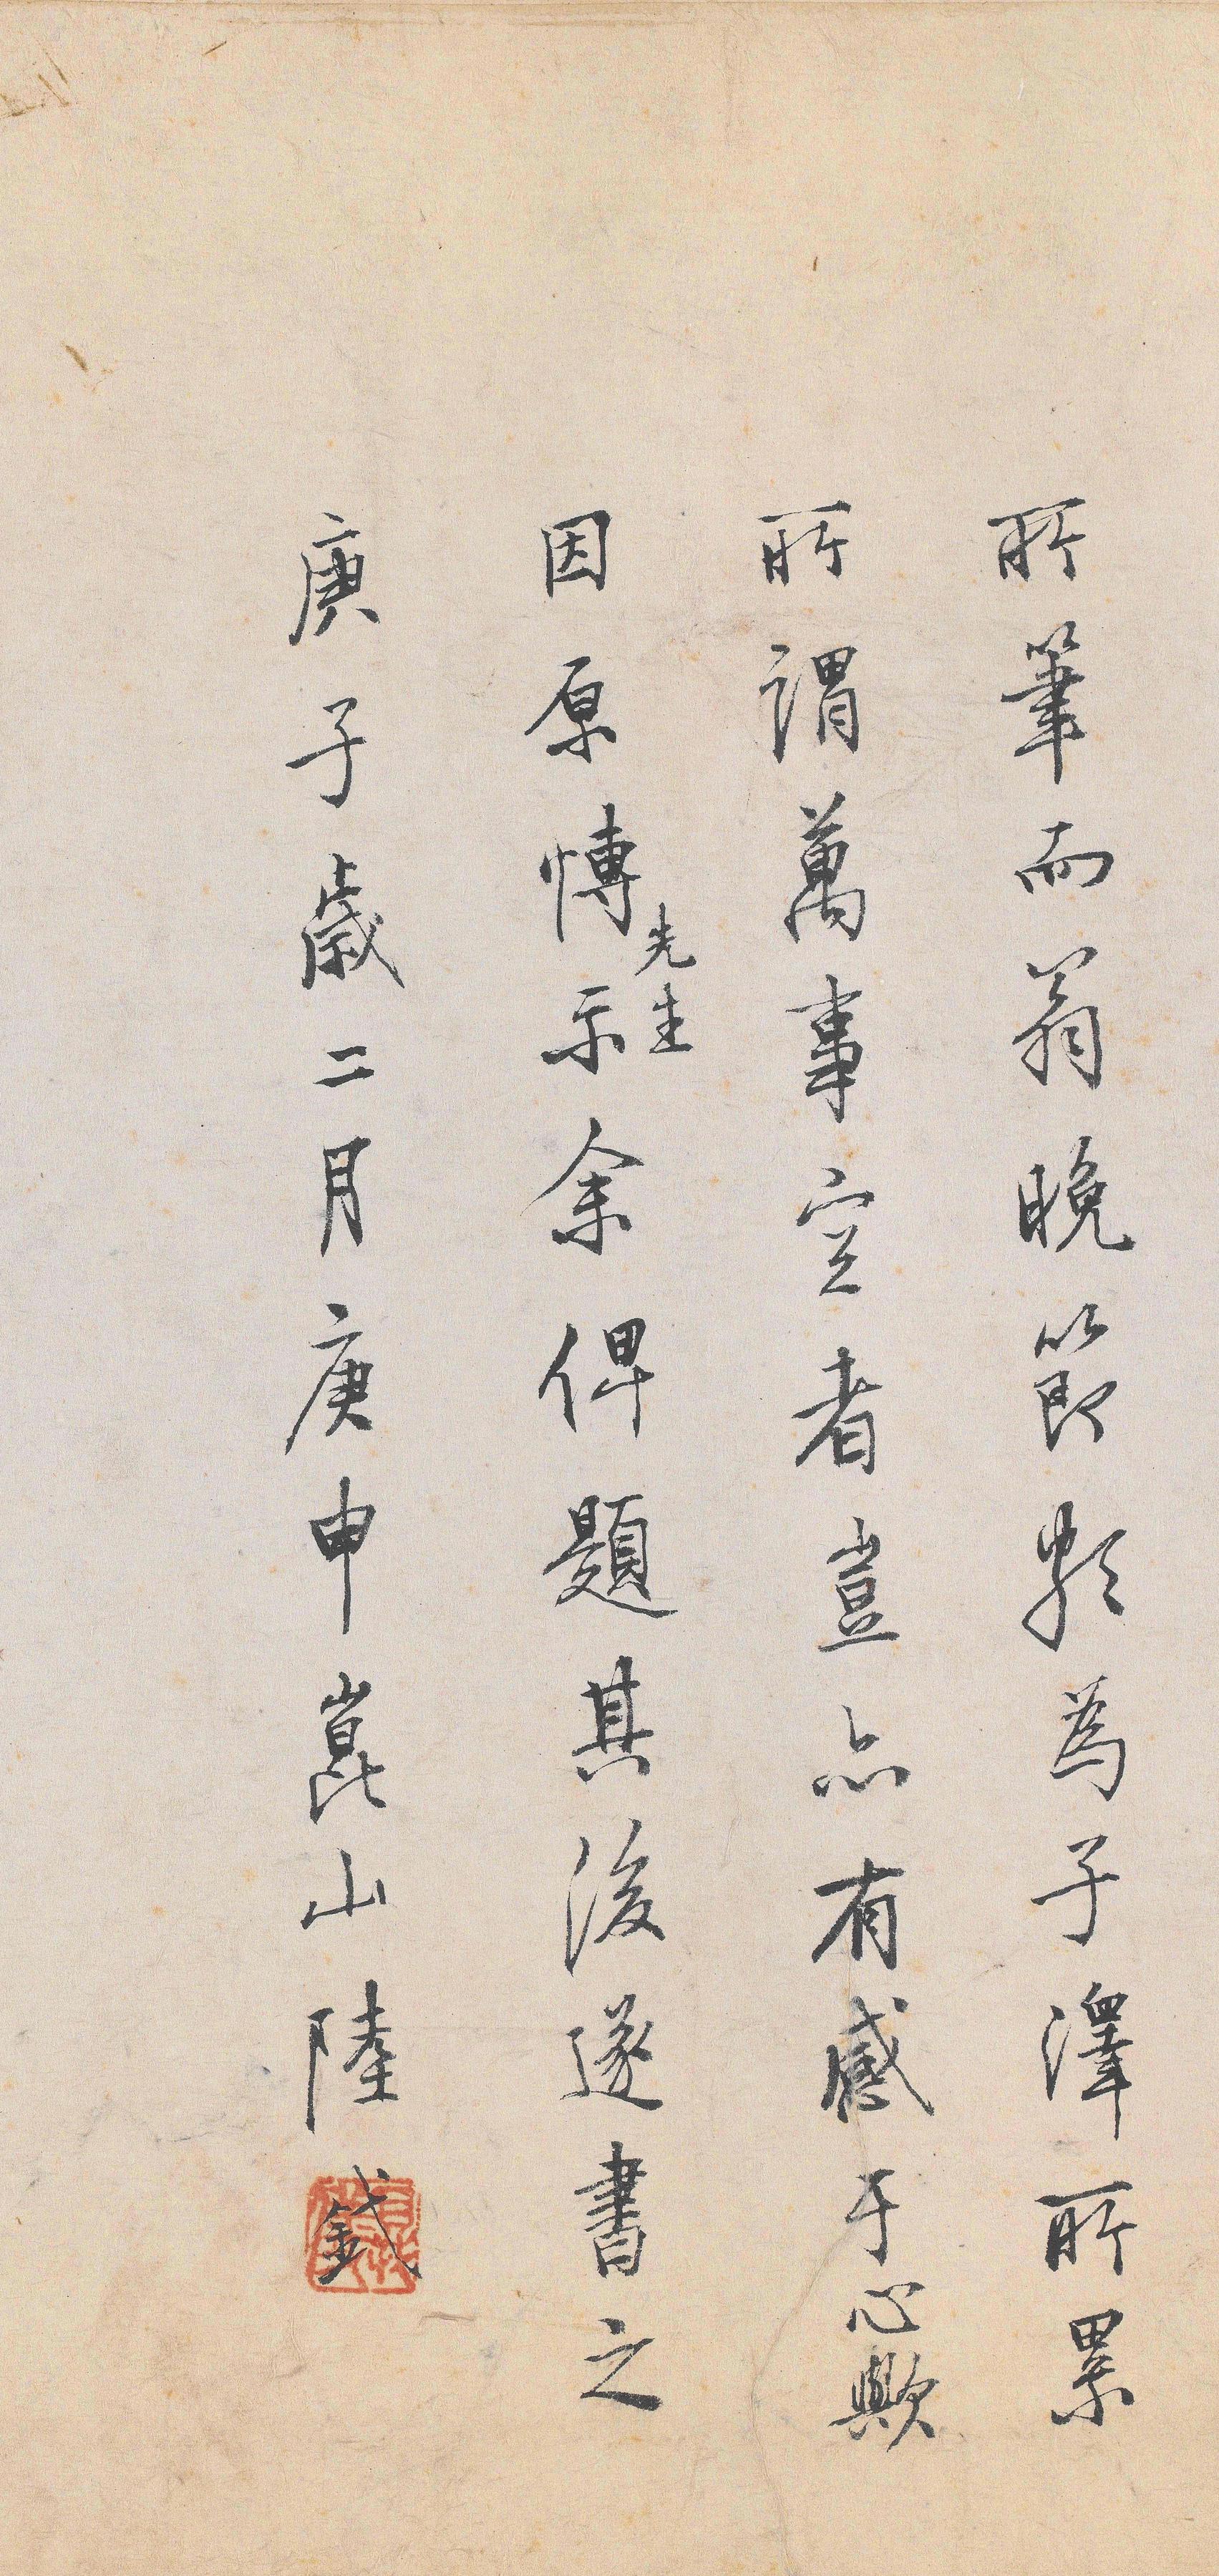 所筆而翁晚節頗為子澤所累
所謂萬事空者豈亦有感于心歟
因原愽先生示余俾題其後遂書之
庚子歲二月庚申崑山陸釴